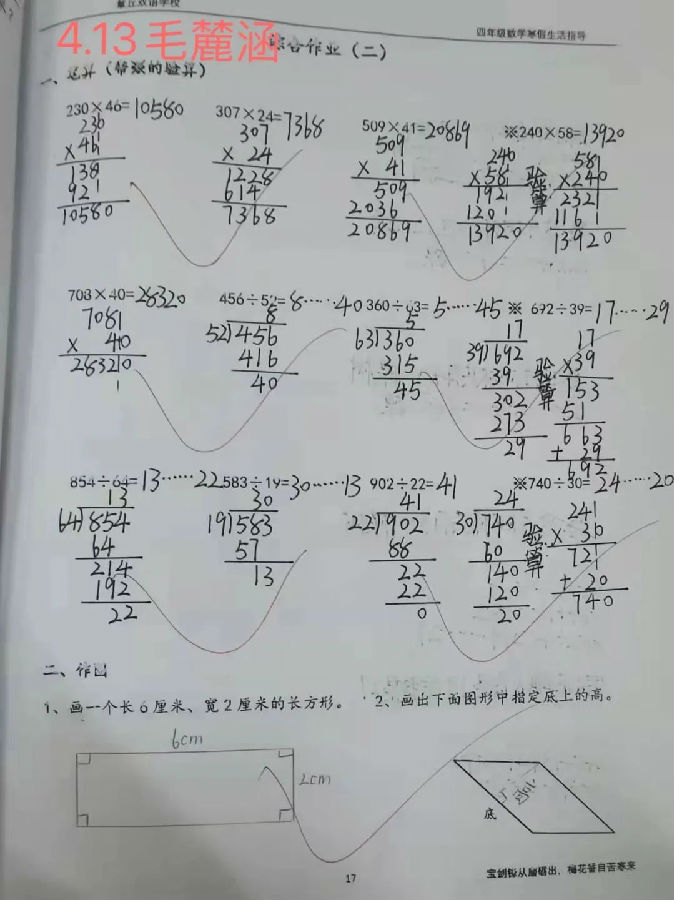 章丘双语学校
四年级数学寒假生活指导
4.13毛麓涵
综合作业（二）
一、竖式（带※的验算）
230×46=10580
307×24=7368
509×41=20869
※240×58=13920
230
×46
138
92
10580
307
× 24
1228
614
7368
509
× 41
509
2036
20869
240
×58
192
120
13920
验算
58
×240
232
116
13920
708×40=28320
456÷52=8……40
360÷63=5……45
※ 692÷39=17……29
708
× 40
28320
8
52)456
416
40
5
63)360
315
45
17
39)692
39
302
273
29
验算
17
×39
153
51
663
+ 29
692
854÷64=13……22
583÷19=30……13
902÷22=41
※740÷30=24……20
13
64)854
64
214
192
22
30
19)583
57
13
41
22)902
88
22
22
0
24
30)740
60
140
120
20
验算
24
× 30
72
+ 20
740
二、作图
1、画一个长6厘米、宽2厘米的长方形。
2、画出下面图形中指定底上的高。
6cm
2cm
高
底
17
宝剑锋从磨砺出，梅花香自苦寒来